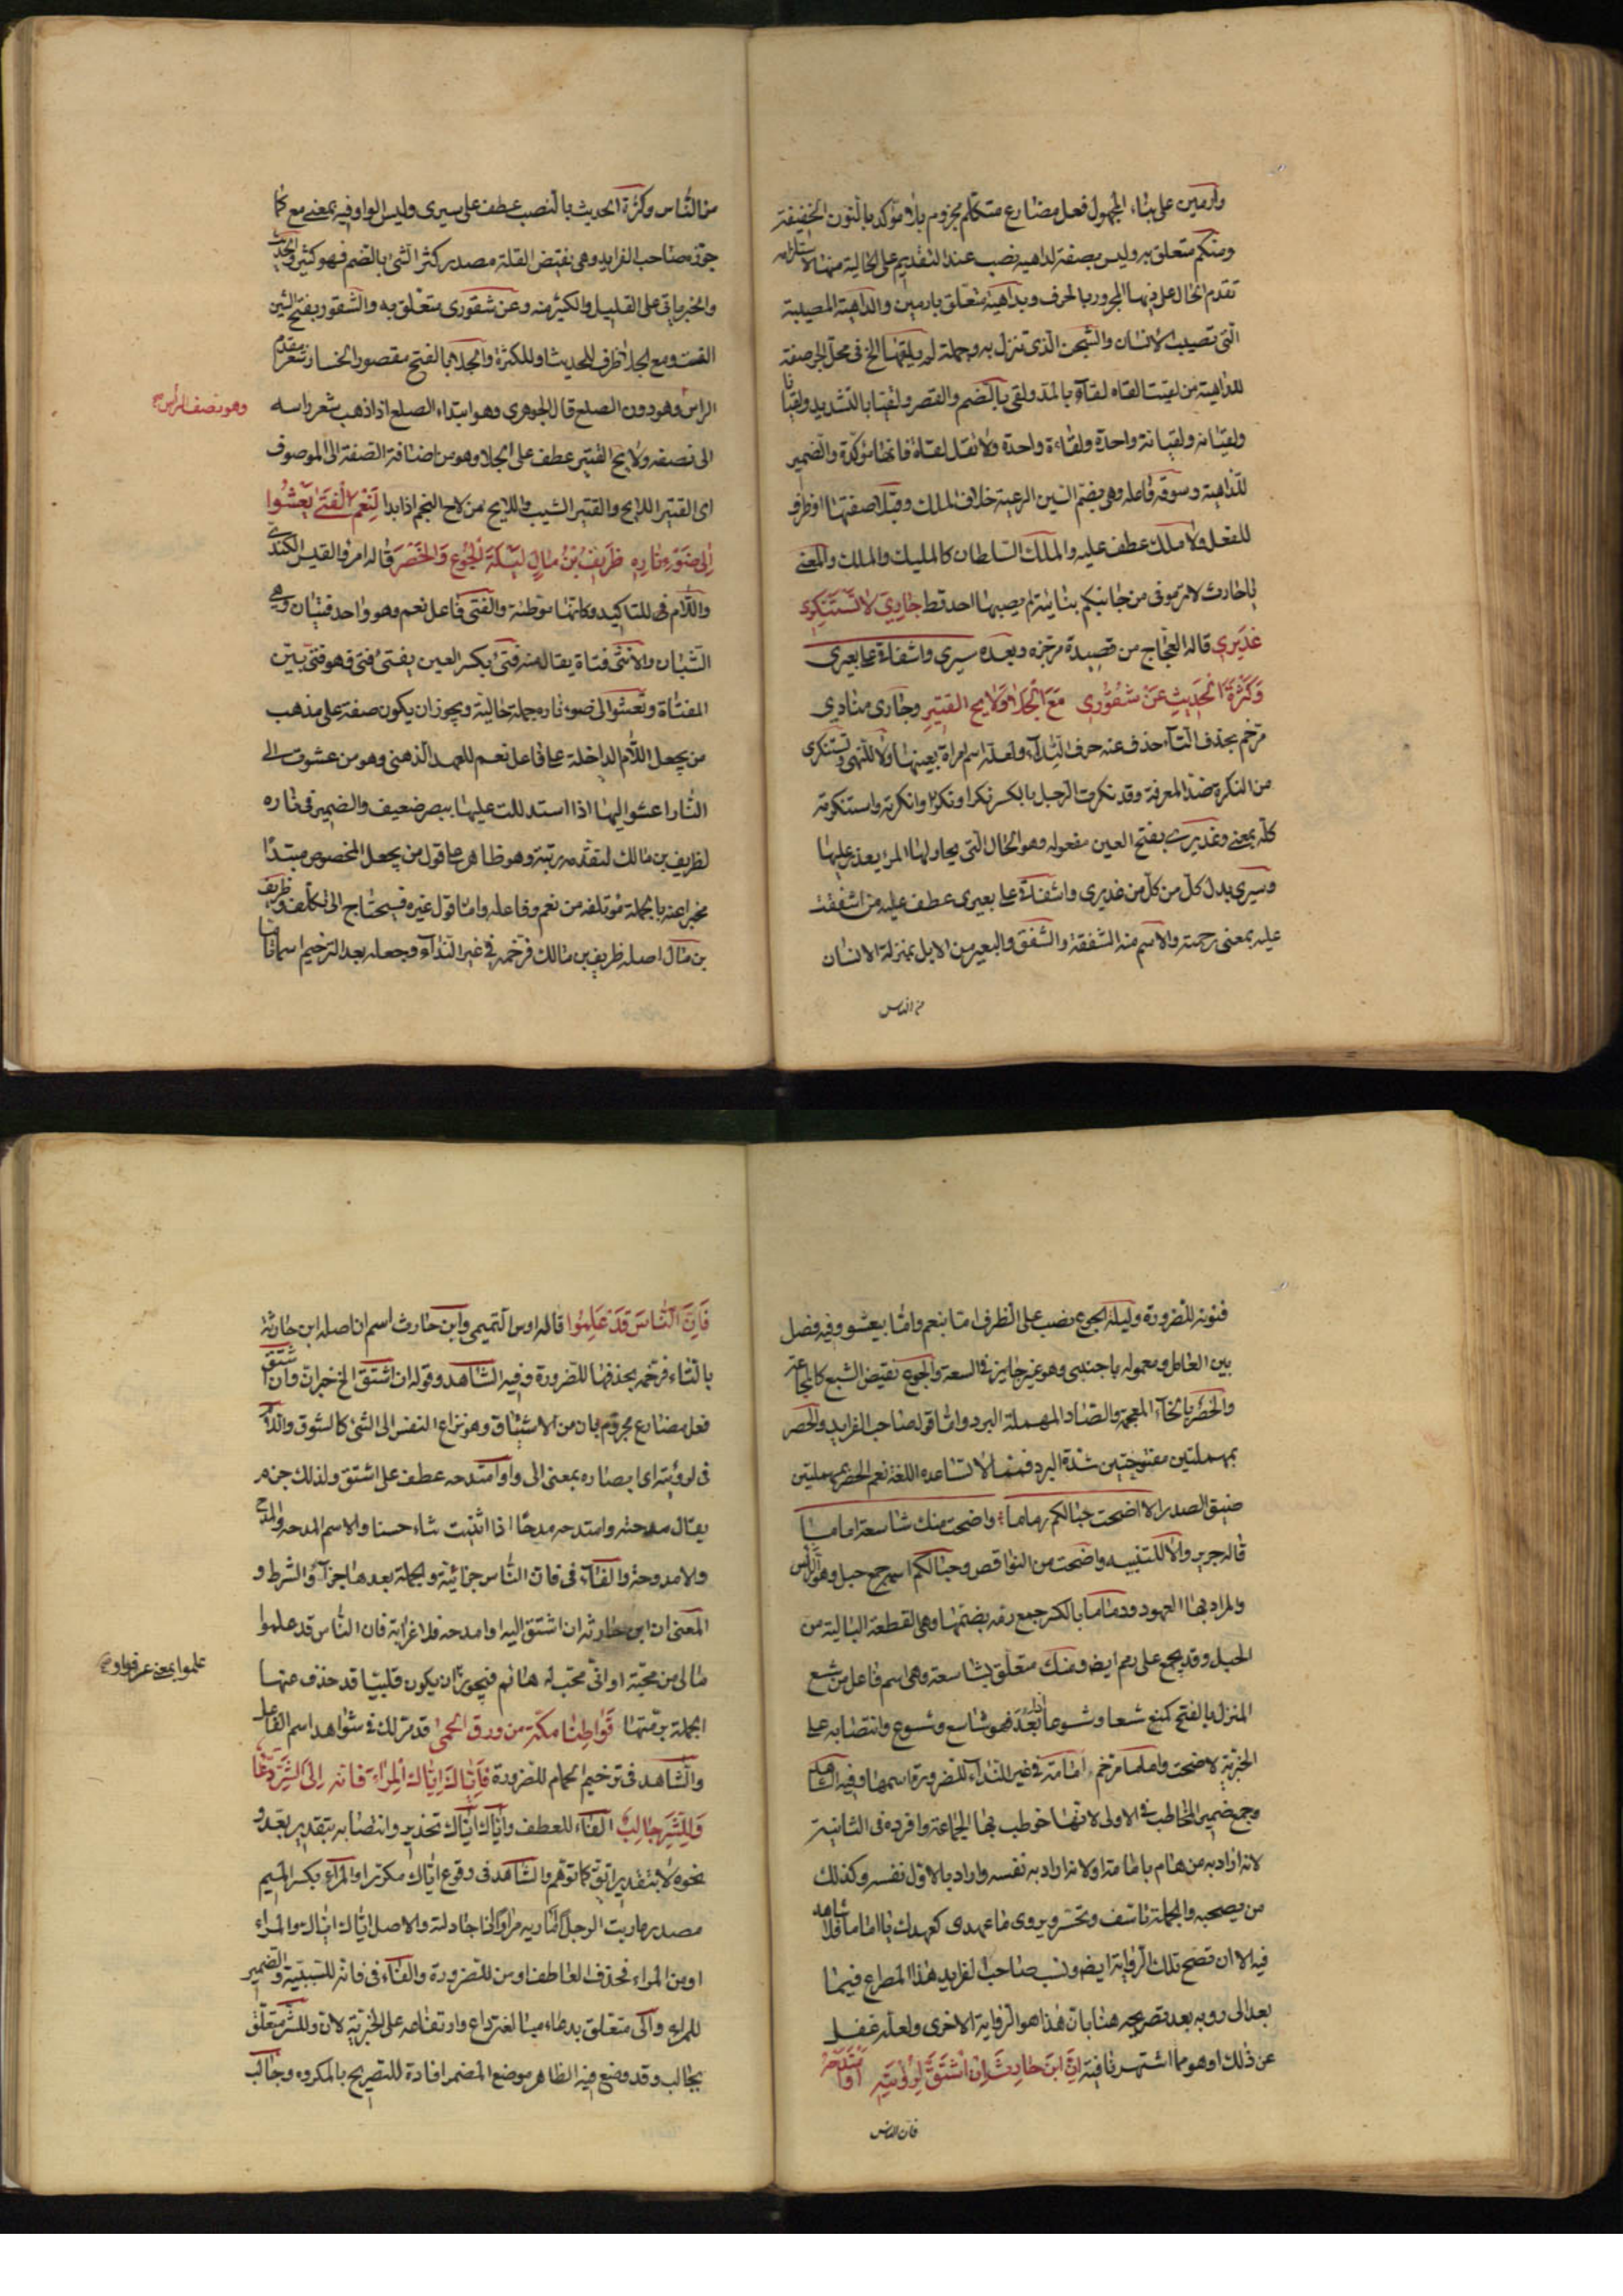 وارمين على بناء المجهول فعل مضارع متكلم مجزوم بلا مؤكد بالنون الخفيفة
ومنكم متعلق به وليس بصفة لداهية نصب عند التقديم على الحالية منها لاستلزامه
تقدم الحال على ذيها المجرور بالحرف وبداهية متعلق بارمين والداهية المصيبة
التي تصيب الانسان والشجن الذي تنزل به وجملة لم يلقها الخ في محل الجر صفة
للداهية من لقيت القاه لقاء بالمد ولقى بالضم والقصر ولقيا بالتشديد ولقيانا
ولقيانه ولقيانة واحدة ولقاءة واحدة ولا تقل لقاة فانها مولدة والضمير
للداهية وسوقة فاعله وهي بضم السين الرعية خلاف الملك وقبلا صفتها او ظرف
للفعل ولا ملك عطف عليه والملك السلطان كالمليك والملك والمعنى
يا حارث لا ترموني من جانبكم بنائبة لم يصبها احد قط جَارِيَ لا تَسْتَنْكِرِي
عَذِيرِي قاله العجاج من قصيدة مرجزة وبعده سيري واشفاق على بعيري
وَكَثْرَةَ الحَدِيثِ عَنْ شَقُورِي مَعَ الجَلَا وَلَايِحِ القَتِيرِ وجاري منادى
مرخم بحذف التاء حذف عنه حرف النداء ولعله اسم امراة بعينها ولا للنهي وتستنكري
من النكرة ضد المعرفة وقد نكرت الرجل بالكسر نكرا ونكرا وانكرته واستنكرته
كله بمعنى وعذيري بفتح العين مفعوله وهو الحال التي يحاولها المرء يعذر عليها
وسيري بدل كل من كل من عذيري واشفاق على بعيري عطف عليه من اشفقت
عليه بمعنى رحمته والاسم منه الشفقة والشفق والبعير من الابل بمنزلة الانسان
من الناس
من الناس وكثرة الحديث بالنصب عطف على سيري وليس الواو فيه بمعنى مع كما
جوزه صاحب الفرايد وهي نقيض القلة مصدر كثر الشئ بالضم فهو كثير والحديث
والخبر ياتي على القليل والكثير منه وعن شقوري متعلق به والشقور بفتح الشين
ومع الجلا ظرف للحديث او للكثرة والجلا بالفتح مقصورا انحسار شعر مقدم
الراس وهو دون الصلع قال الجوهري وهو ابتداء الصلع اذا ذهب شعر راسه
وهو نصف الراس
الى نصفه ولايح القتير عطف على الجلا وهو من اضافة الصفة الى الموصوف
اي القتير اللايح والقتير الشيب واللايح من لاح النجم اذا بدا لَنِعْمَ الْفَتَى تَعْشُوا
اِلى ضَوْءِ نَارِهِ طَرِيفُ بْنُ مَالٍ لَيْلَةَ الْجُوعِ وَالخَصَرْ قاله امرؤ القيس الكندي
واللام في للتاكيد وكانها موطئة والفتى فاعل نعم وهو واحد فتيان وهي
الشبان والانثى فتاة يقال منه فتي بكسر العين يفتى فتى فهو فتي بين
الفتاة وتعشوا الى ضوء ناره جملة حالية ويجوز ان يكون صفة على مذهب
من يجعل اللام الداخلة على فاعل نعم للعهد الذهني وهو من عشوت الى
النار اعشو اليها اذا استدللت عليها ببصر ضعيف والضمير في ناره
لطريف بن مالك لتقدمه رتبة وهو ظاهر على قول من يجعل المخصوص مبتدا
مخبرا عنه بالجملة مؤتلفة من نعم وفاعله واما قول غيره فيحتاج الى تكلف وطريف
بن مال اصله طريف بن مالك فرخمه في غير النداء وجعله بعد الترخيم اسما تاما
فنونه للضرورة وليلة الجوع نصب على الظرف اما بنعم واما بيعشو وفيه فصل
بين العامل ومعموله باجنبي وهو غير جايز في السعة والجوع نقيض الشبع كالمجاعة
والخصر بالخاء المعجمة والصاد المهملة البرد واما قول صاحب الفرايد والحصر
بمهملتين مفتوحتين شدة البرد فمما لا تساعده اللغة نعم الحصر بمهملتين
ضيق الصدر الا اضحت حبالكم رماما واضحت منك شاسعة اماما
قاله جرير والا للتنبيه واضحت من النواقص وحبالكم اسمه جمع حبل وهو
والمراد بها العهود ورماما بالكسر جمع رمة بضمها وهي القطعة البالية من
الحبل وقد يجمع على رمم ايضا ومنك متعلق بشاسعة وهي اسم فاعل من شسع
المنزل بالفتح كمنع شسعا وشسوعا اذا بعد فهو شاسع وشسوع وانتصابه على
الخبرية لاضحت واماما مرخم امامة في غير النداء للضرورة اسمها وفيه الشاهد
وجمع ضمير المخاطب في الاولى لانها خوطب بها الجماعة وافرده في الثانية
لانه اراد به من هام بامامة او لانه اراد به نفسه واراد بالاول نفسه وكذلك
من يصحبه والجملة تاسف وتحسر ويروى ما عهدي كعهدك يا اماما فلا شاهد
فيه الا ان تصح تلك الرواية ايضا ونسب صاحب الفرايد هذا المصراع فيما
بعد الى روبه بعد تصريحه هنا بان هذا هو الرواية الاخرى ولعله غفل
عن ذلك او هو مما اشتهر ثانية اِنَّ ابْنَ حَارِثَ اِنْ اَشْتَقْ لِرُؤْيَتِهِ اَوْ اَمْتَدِحْهُ
فان الناس
فَاِنَّ النَّاسَ قَدْ عَلِمُوا قاله اوس التميمي وابن حارث اسم ان اصله ابن حارثة
بالتاء فرخمه بحذفها للضرورة وفيه الشاهد وقوله ان اشتق الخ خبران وان اشتق
فعل مضارع مجزوم بان من الاشتياق وهو نزاع النفس الى الشئ كالشوق واللام
في لرؤيته اي ابصاره بمعنى الى واو امتدحه عطف على اشتق ولذلك جزم
يقال مدحته وامتدحه مدحا اذا اثنيت ثناء حسنا والاسم المدحه والمدح
والامدوحة والفاء في فان الناس جزائية والجملة بعدها جزاء الشرط و
المعنى ان ابن حارثة ان اشتق اليه او امدحه فلا غرابة فان الناس قد علموا
علموا بمعنى عرفوا و
ما لي من محبة او اني محب له هائم فيجوز ان يكون قلبيا قد حذف عنها
الجملة برمتها قَوَاطِنًا مكّة من ورق الحمى قد مر لك في شواهد اسم الفاعل
والشاهد في ترخيم الحمام للضرورة فَاِيَّاكَ اِيَّاكَ المِرَاءَ فَانه اِلَى الشَّرِّ دَعَّا
وَلِلشَّرِّ جَالِبُ الفاء للعطف واياك اياك تحذير وانتصابه بتقدير بعد و
نحوه لا بتقدير اتق كما توهم والشاهد في وقوع اياك مكررا والمراء بكسر الميم
مصدر ماريت الرجل اماريه مراء اذا جادلته والاصل اياك اياك والمراء
او من المراء فحذف العاطف او من للضرورة والفاء في فانه للسببية والضمير
للمراء والى متعلق بدعاء مبالغة داع وارتفاعه على الخبرية لان وللشر متعلق
بجالب وقد وضع فيه الظاهر موضع المضمر افادة للتصريح بالمكروه وجالب